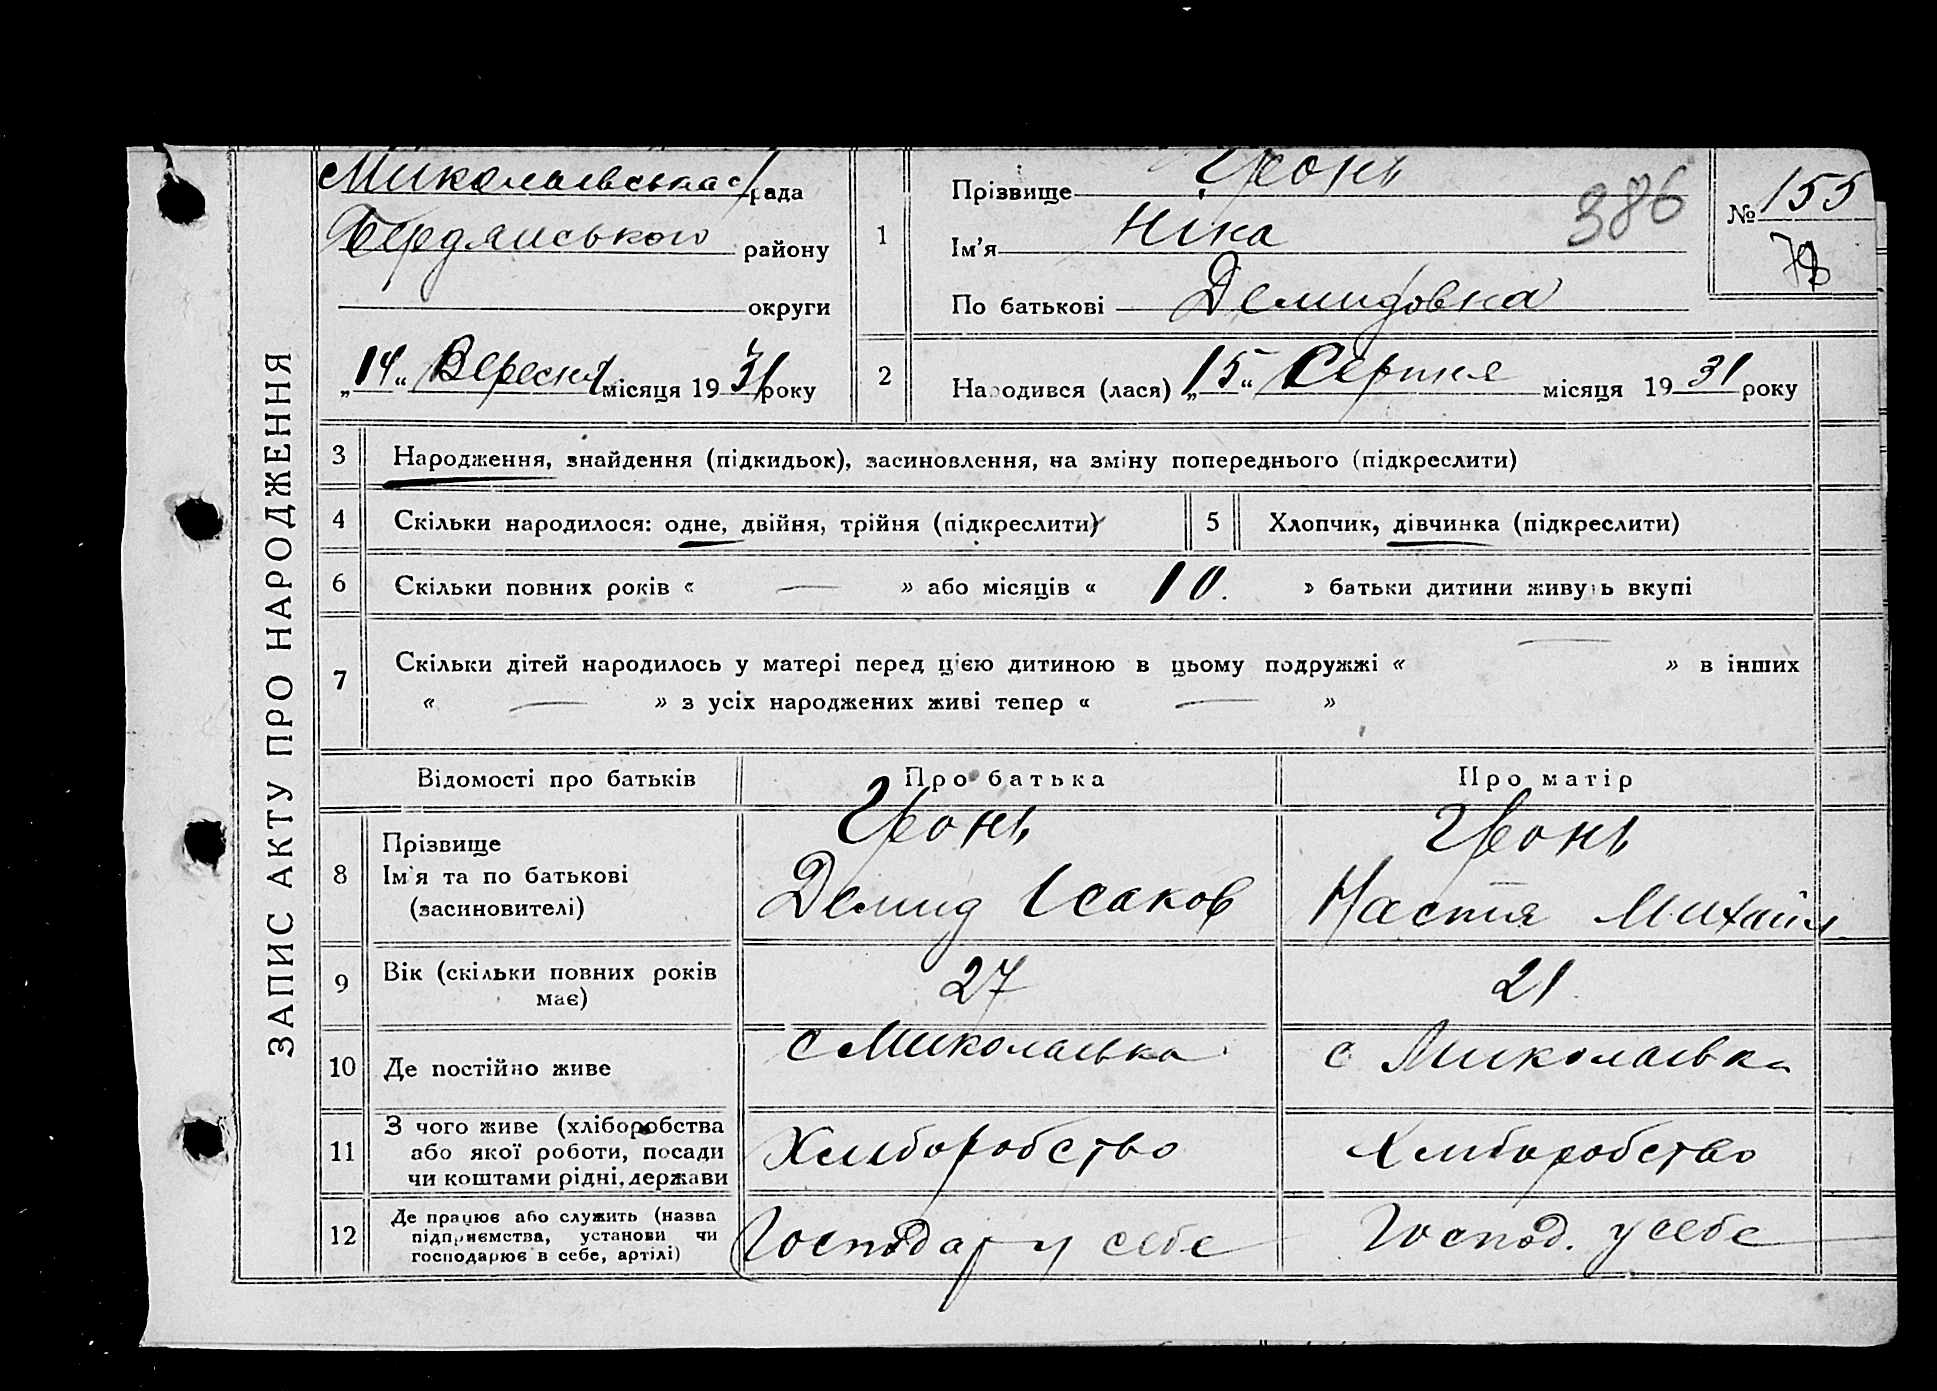 ЗАПИС АКТУ ПРО НАРОДЖЕННЯ
Миколаївська с/рада
Бердянського району
округи
„14“ Вересня місяця 1931 року
1
Прізвище Гронь
Ім'я Ніна
По батькові Демидовна
386
№ 155
2
Народився (лася) „15“ Серпня місяця 1931 року
3 Народження, знайдення (підкидьок), засиновлення, на зміну попереднього (підкреслити)
4 Скільки народилося: одне, двійня, трійня (підкреслити)
5 Хлопчик, дівчинка (підкреслити)
6 Скільки повних років « — » або місяців « 10. » батьки дитини живуть вкупі
7 Скільки дітей народилось у матері перед цією дитиною в цьому подружжі « — » в інших
« — » з усіх народжених живі тепер « — »
Відомості про батьків Про батька Про матір
8 Прізвище
Ім'я та по батькові
(засиновителі)
Гронь
Демид Ісаков
Гронь
Настя Михайл
9 Вік (скільки повних років
має)
27
21
10 Де постійно живе
с Миколаївка
с Миколаївка
11 З чого живе (хліборобства
або якої роботи, посади
чи коштами рідні, держави
Хліборобство
Хліборобство
12 Де працює або служить (назва
підприємства, установи чи
господарює в себе, артілі)
Господар у себе
Господ. у себе